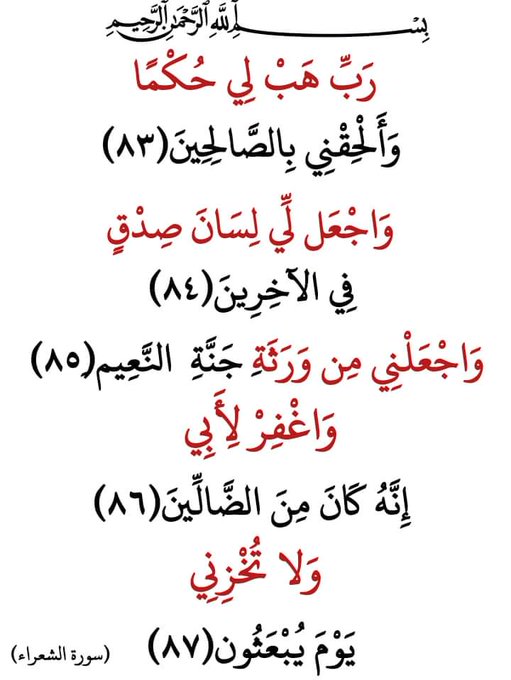 بِسْمِ اللَّهِ الرَّحْمَٰنِ الرَّحِيمِ
رَبِّ هَبْ لِي حُكْمًا
وَأَلْحِقْنِي بِالصَّالِحِينَ(٨٣)
وَاجْعَل لِّي لِسَانَ صِدْقٍ
فِي الآخِرِينَ(٨٤)
وَاجْعَلْنِي مِن وَرَثَةِ جَنَّةِ النَّعِيم(٨٥)
وَاغْفِرْ لِأَبِي
إِنَّهُ كَانَ مِنَ الضَّالِّينَ(٨٦)
وَلا تُخْزِنِي
يَوْمَ يُبْعَثُون(٨٧)
(سورة الشعراء)